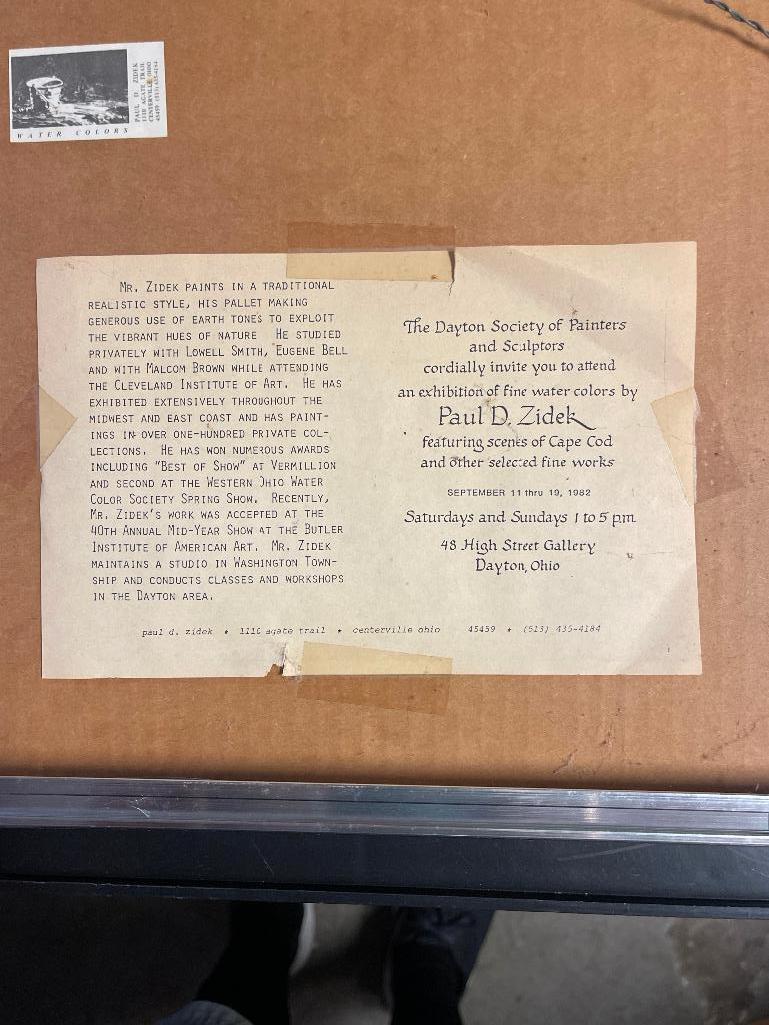 PAUL D ZIDEK
1110 AGATE TRAIL
CENTERVILLE, OHIO
45459 (513) 435-4184
WATER COLORS
MR. ZIDEK PAINTS IN A TRADITIONAL
REALISTIC STYLE, HIS PALLET MAKING
GENEROUS USE OF EARTH TONES TO EXPLOIT
THE VIBRANT HUES OF NATURE HE STUDIED
PRIVATELY WITH LOWELL SMITH, EUGENE BELL
AND WITH MALCOM BROWN WHILE ATTENDING
THE CLEVELAND INSTITUTE OF ART. HE HAS
EXHIBITED EXTENSIVELY THROUGHOUT THE
MIDWEST AND EAST COAST AND HAS PAINT-
INGS IN OVER ONE-HUNDRED PRIVATE COL-
LECTIONS. HE HAS WON NUMEROUS AWARDS
INCLUDING "BEST OF SHOW" AT VERMILLION
AND SECOND AT THE WESTERN OHIO WATER
COLOR SOCIETY SPRING SHOW. RECENTLY,
MR. ZIDEK'S WORK WAS ACCEPTED AT THE
40TH ANNUAL MID-YEAR SHOW AT THE BUTLER
INSTITUTE OF AMERICAN ART. MR. ZIDEK
MAINTAINS A STUDIO IN WASHINGTON TOWN-
SHIP AND CONDUCTS CLASSES AND WORKSHOPS
IN THE DAYTON AREA.
The Dayton Society of Painters
and Sculptors
cordially invite you to attend
an exhibition of fine water colors by
Paul D. Zidek
featuring scenes of Cape Cod
and other selected fine works
SEPTEMBER 11 thru 19, 1982
Saturdays and Sundays 1 to 5 p.m
48 High Street Gallery
Dayton, Ohio
paul d. zidek ★ 1110 agate trail ★ centerville ohio 45459 ★ (513) 435-4184